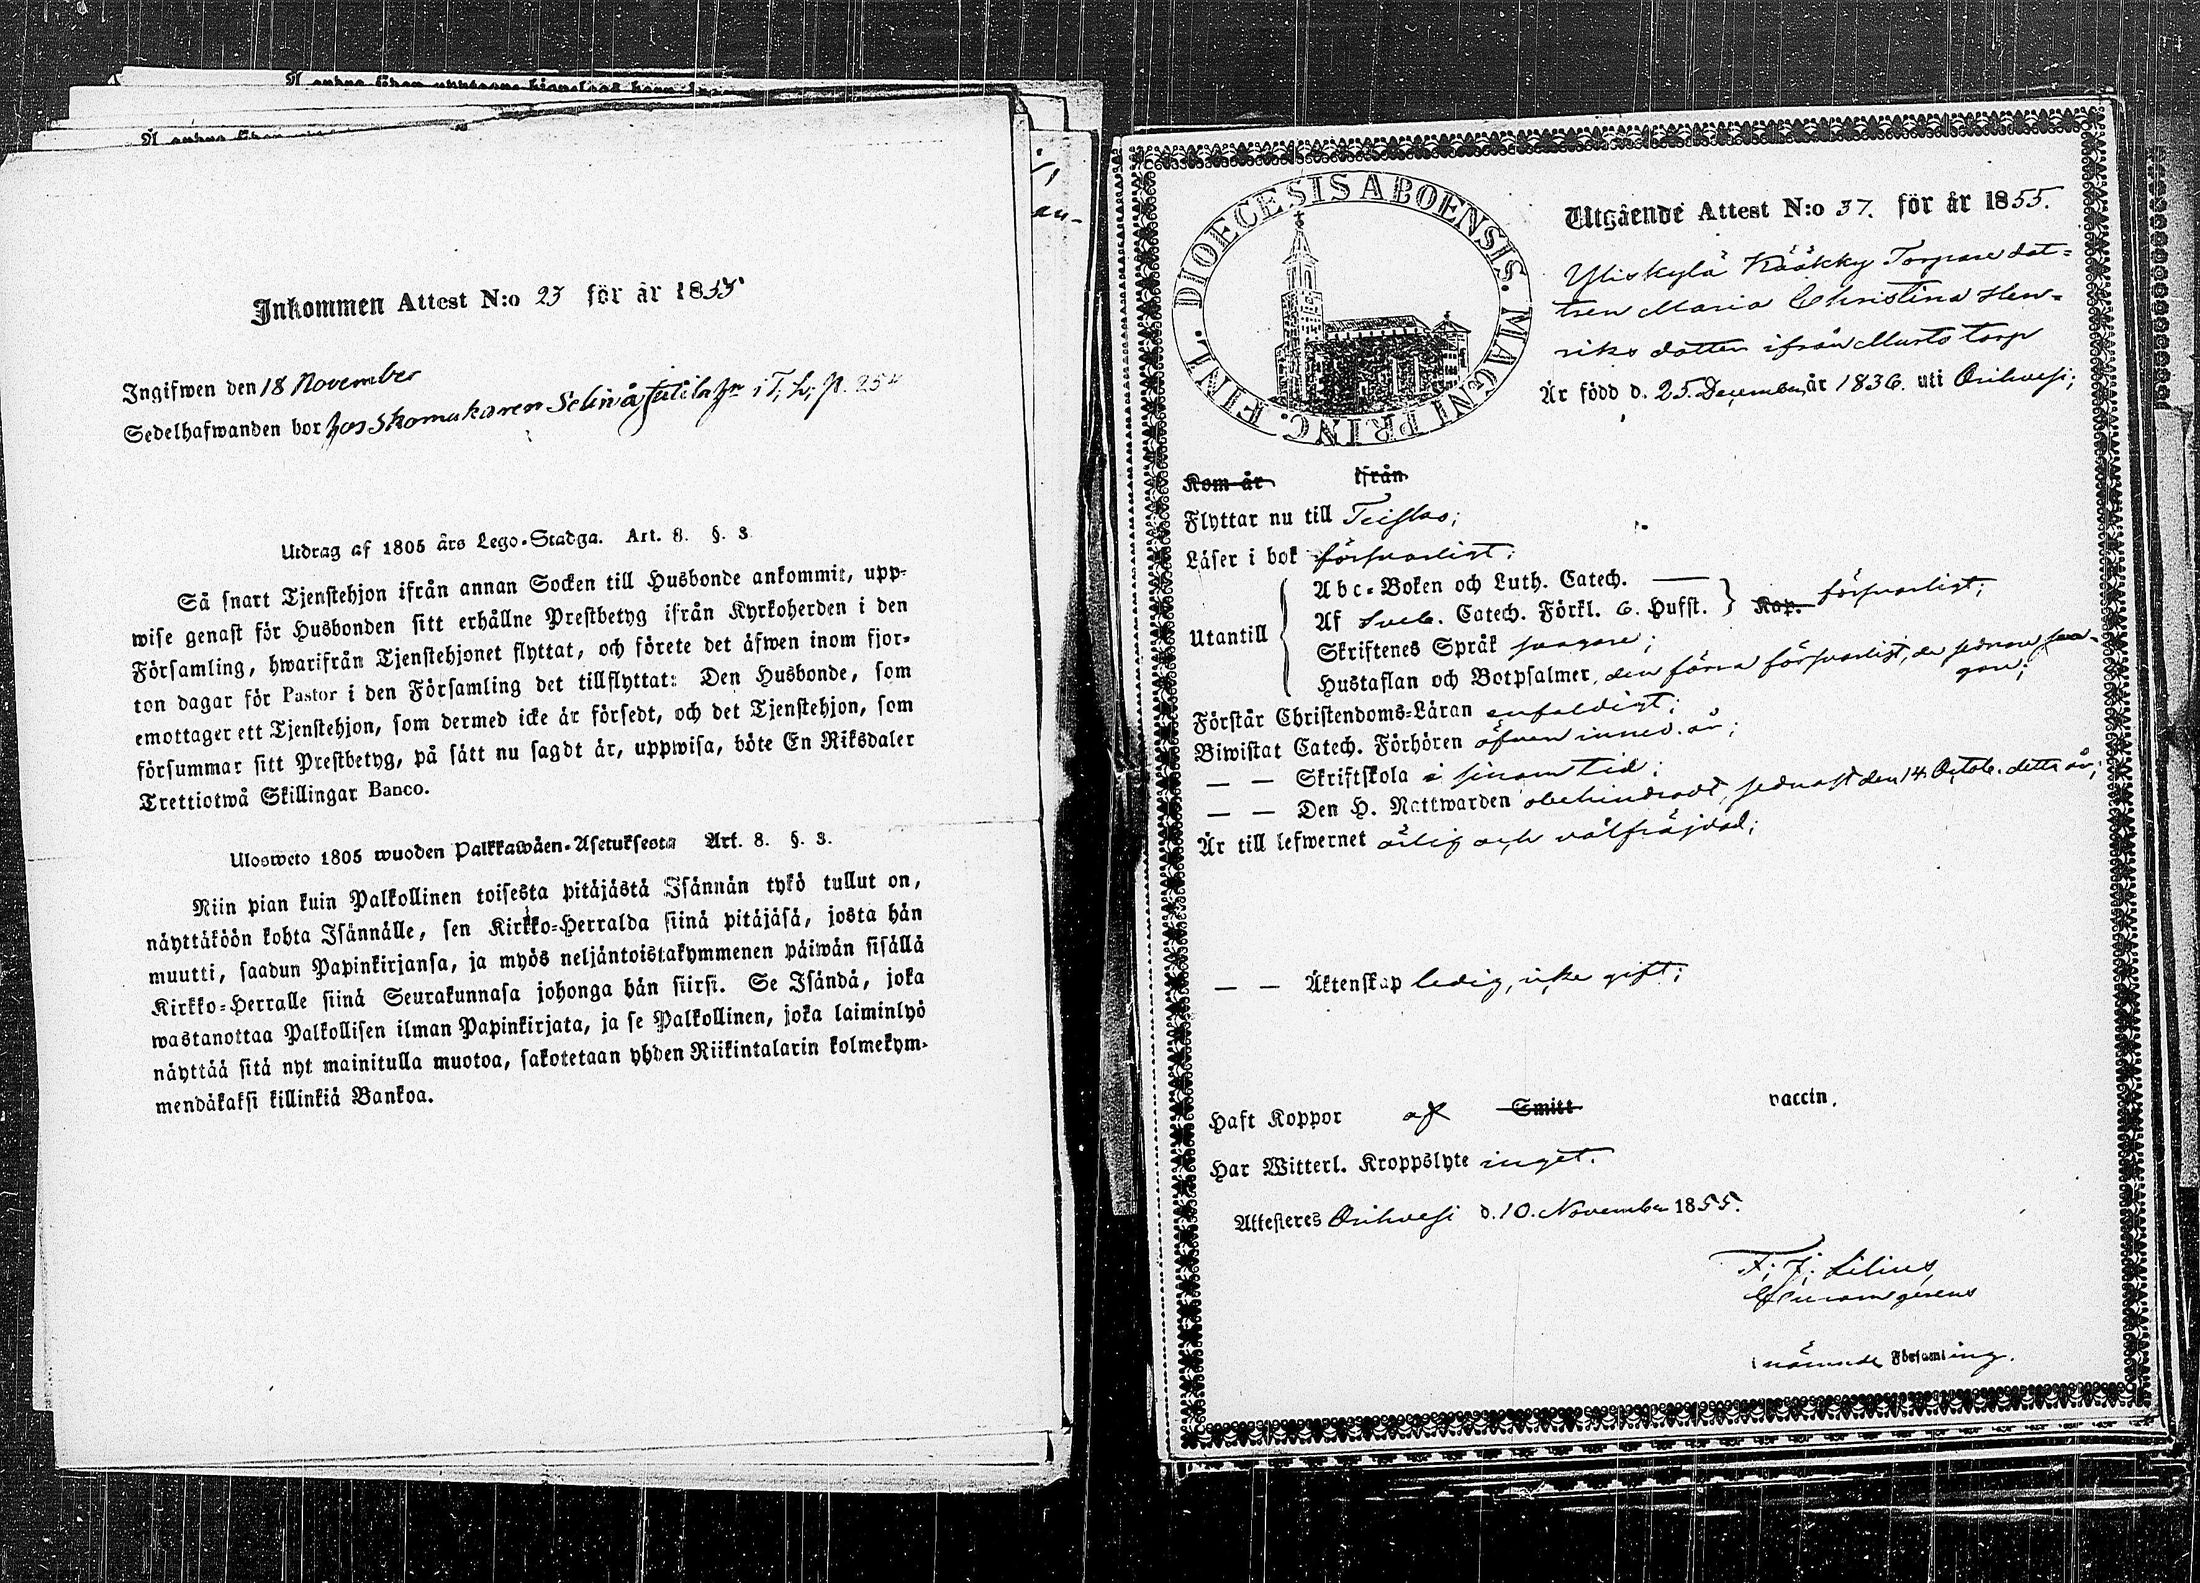 Inkommen Attest N:o 23 för år 1855
Ingifwen den 18 November
Sedelhafwanden bor hos Skomakaren Selin å i T. h. p. 254
Utdrag af 1805 års Lego-Stadga. Art. 8. §. 3
Så snart Tjenstehjon ifrån annan Socken till Husbonde ankommit, upp-
wise genast för Husbonden sitt erhållne Prestbetyg ifrån Kyrkoherden i den
Församling, hwarifrån Tjenstehjonet flyttat, och förete det äfwen inom fjor-
ton dagar för Pastor i den Församling det tillflyttat: Den Husbonde, som
emottager ett Tjenstehjon, som dermed icke är försedt, och det Tjenstehjon, som
försummar sitt Prestbetyg, på sätt nu sagdt är, uppwisa, böte En Riksdaler
Trettiotwå Skillingar Banco.
Ulosweto 1805 wuoden Palkkawäen-Asetuksesta Art. 8. §. 3.
Niin pian kuin Palkollinen toisesta pitäjästä Isännän tykö tullut on,
näyttäköön kohta Isännälle, sen Kirkko-Herralda siinä pitäjäsä, josta hän
muutti, saadun Papinkirjansa, ja myös neljäntoistakymmenen päiwän sisällä
Kirkko-Herralle siinä Seurakunnasa johonga hän siirsi. Se Isändä, joka
wastanottaa Palkollisen ilman Papinkirjata, ja se Palkollinen, joka laiminlyö
näyttää sitä nyt mainitulla muotoa, sakotetaan yhden Riikintalarin kolmekym-
mendäkaksi killinkiä Bankoa.
DIOECESIS ABOENSIS. MAGNI PRINC. FINL.
Utgående Attest N:o 37. för år 1855.
Yliskylä Kääkky Torpare dot-
tren Maria Christina Hen-
riks dotter ifrån Murto torp
Är född d. 25. December år 1836. uti Orihvesi;
Kom år ifrån
Flyttar nu till Teisko;
Läser i bok försvarligt;
Utantill
Abc-Boken och Luth. Catech. —
Af Sveb. Catech. Förkl. 6. Hufst. Kap. försvarligt;
Skriftenes Språk svagare;
Hustaflan och Botpsalmer, den förra försvarligt, de sednare sva-
gare;
Förstår Christendoms-Läran enfaldigt;
Biwistat Catech. Förhören äfven inned. år;
— — Skriftskola i sinom tid;
— — Den H. Nattwarden obehindradt, sednast den 14 Octob. detta år;
Är till lefwernet ärlig och välfräjdad;
— — Äktenskap ledig, icke gift;
Haft Koppor af Smitt vaccin.
Har Witterl. Kroppslyte inget.
Attesteres Orihvesi d. 10. November 1855.
F. J. Lilius
Curam gerens
i nämnde Församling.